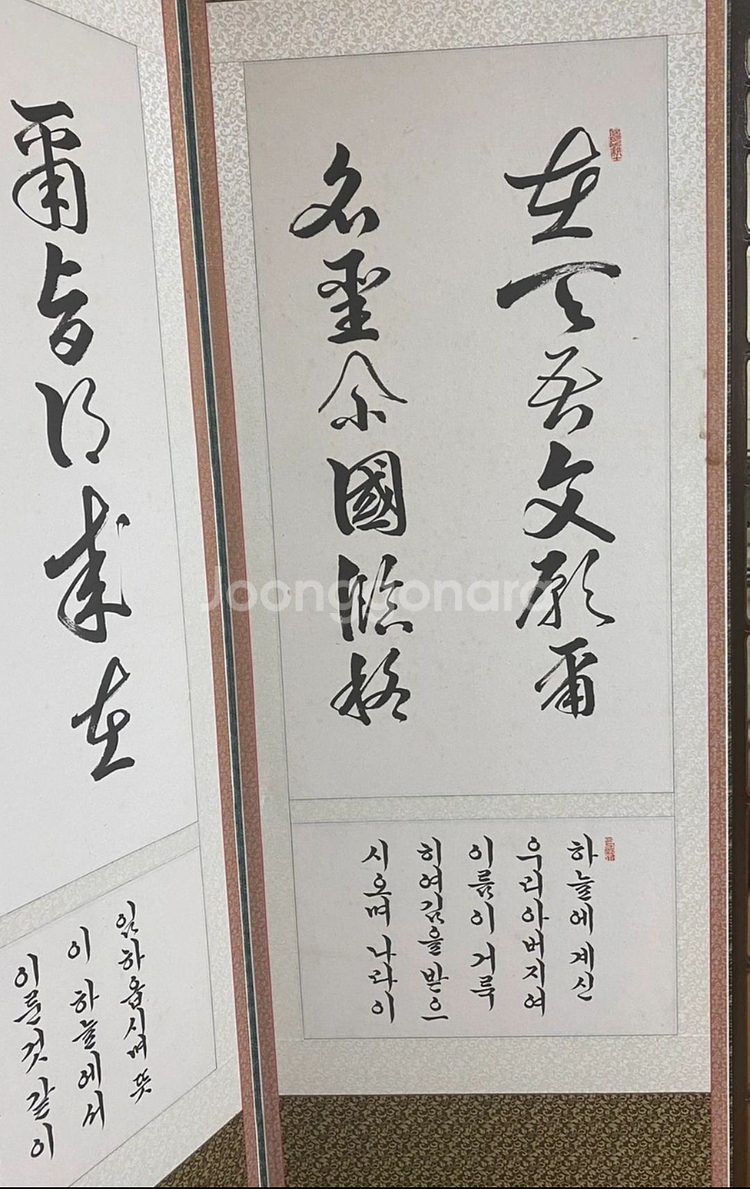 在天吾父願爾
名聖尒國臨格
爾旨得成在
하늘에 계신
우리아버지여
이름이 거룩
히여김을 받으
시오며 나라이
임하옵시며 뜻
이 하늘에서
이룬것 같이
Joonggonara